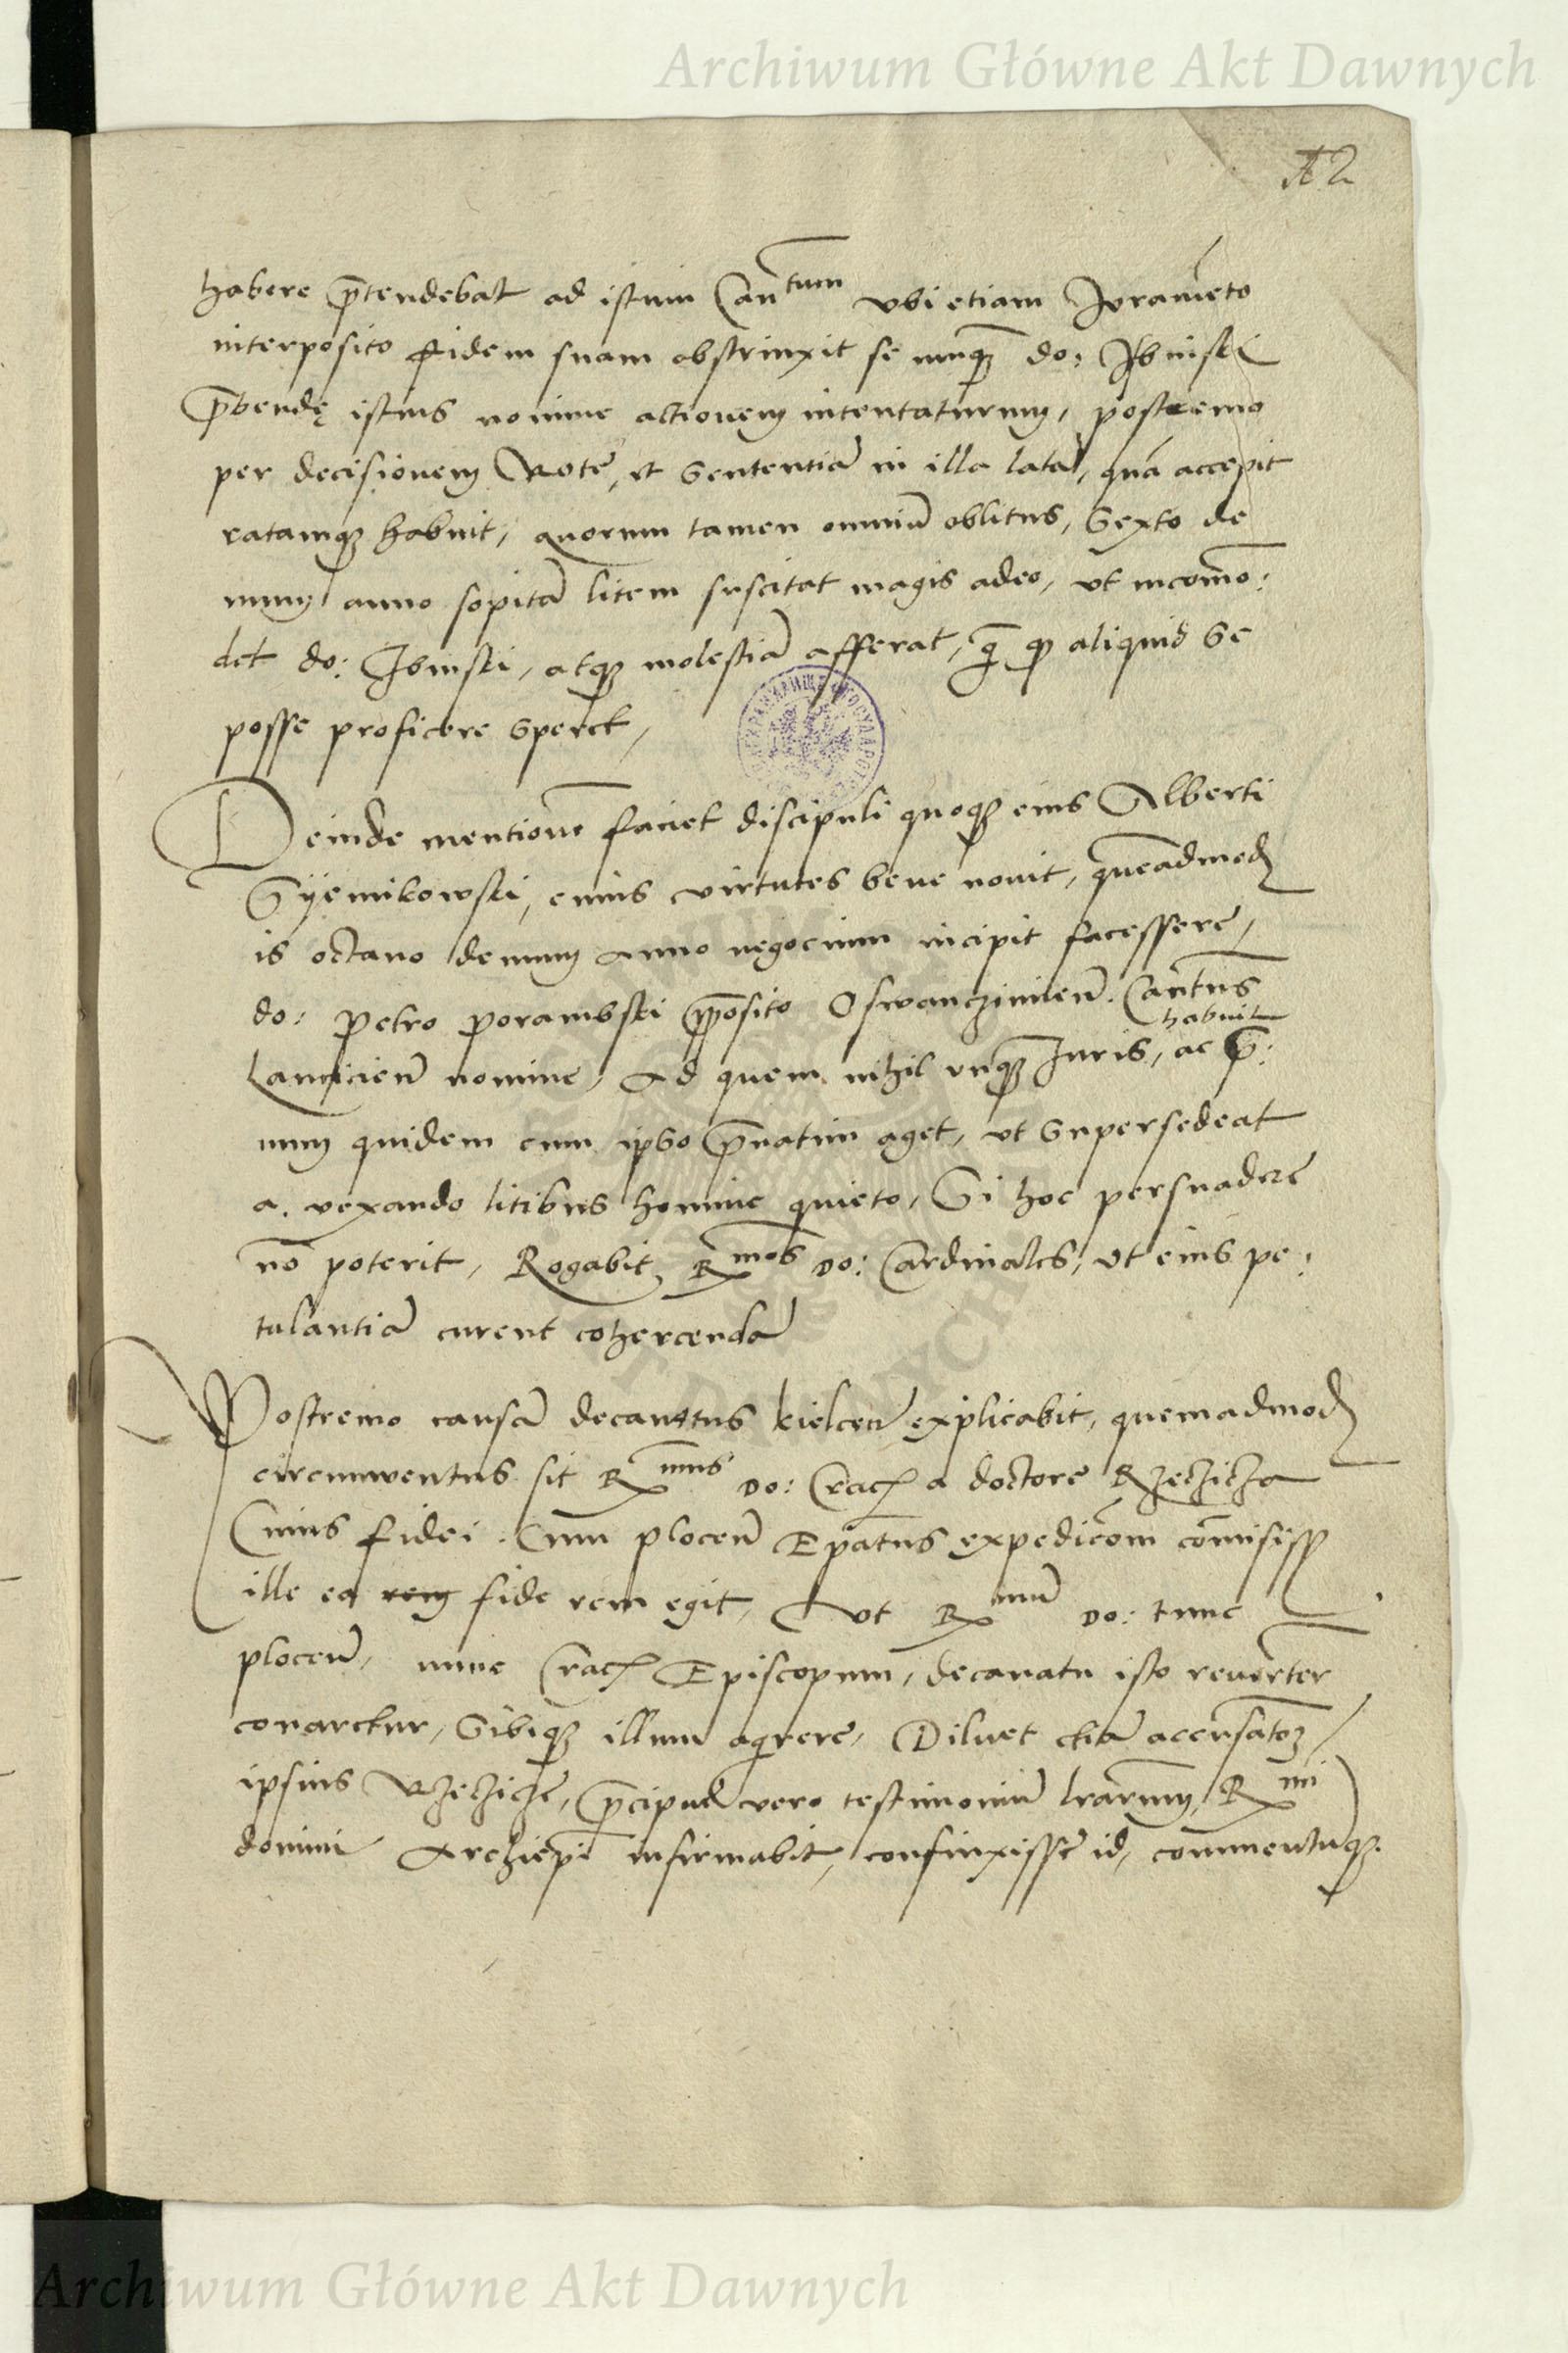 Archiwum Główne Akt Dawnych
habere p̄tendebat ad istum Can̄tum vbi etiam Juramēto
interposito fidem suam obstrinxit se nunqȝ do: Jbinski
p̄bendę istius nomine actionem intentaturum, postremo
per decisionem Rotę, et Sententiā in illa latā, quā accepit
ratamqȝ habuit, quorum tamen omniū oblitus, Sexto de
mum anno sopitā litem suscitat magis adeo, vt incom̄o:
det do: Jbinski, atqȝ molestiā afferat, q̄ q aliquid se
posse proficere speret,
Deinde mentionē faciet discipuli quoqȝ eius Alberti
Syemikowski, cuius virtutes bene nouit, quēadmod
is octauo demum anno negocium incipit facessere,
do: Petro Porambski p̄posito Oswanczimieñ. Can̄tus
habuit
Lanicieñ nomine, Ad quem nihil vnqȝ Juris, ac p̄:
mum quidem cum ipso p̄uatim aget, vt supersedeat
a vexando litibus homine quieto, Si hoc persuadere
nō poterit, Rogabit Rmos Do: Cardinales, vt eius pe:
tulantiā curent cohercendā
Postremo causā decanatus kielceñ explicabit, quemadmod
circumuentus sit Rmus Do: Crac a doctore Rzeczicza
Cuius fidei Cum ploceñ Ep̄atus expedic̄om com̄isiss
ille ea rem fide rem egit, Vt Rmū Do: tunc
ploceñ, nunc Crac Episcopum, decanatu isto reuerter
conaretur, Sibiqȝ illum aq̄rere, Diluet etiā accusatoȝ
ipsius Rzeczicze, p̄cipuē vero testimoniū lrārum, Rmi
domini Archiep̄i infirmabit, confinxisse id, commentuqȝ.
Archiwum Główne Akt Dawnych